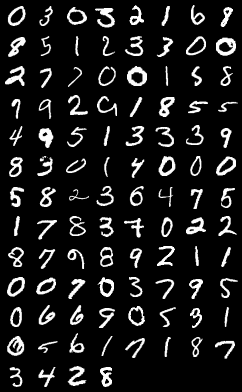 0 3 0 3 2 1 6 8
8 5 1 2 3 3 0 0
2 7 7 0 0 1 5 8
9 9 2 9 1 8 5 5
4 9 5 1 3 3 3 9
8 3 0 1 4 0 0 0
5 8 2 3 6 4 7 5
1 7 8 3 7 0 2 2
8 7 9 8 9 2 1 1
0 0 7 0 3 7 9 5
0 6 6 9 0 5 3 1
0 5 6 1 7 1 8 7
3 4 2 8